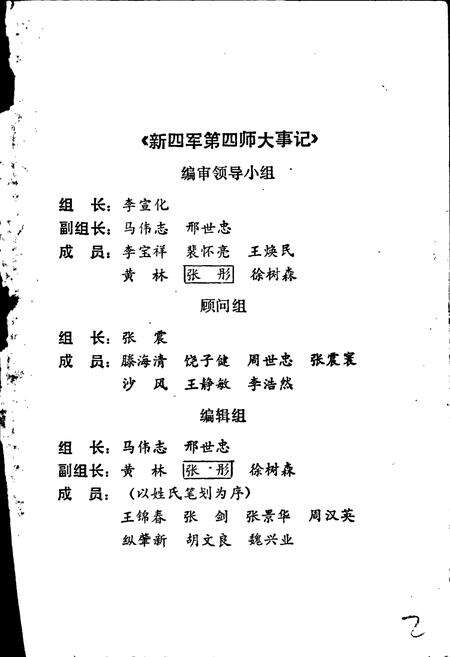 《新四军第四师大事记》
编审领导小组
组　长：李宣化
副组长：马伟志　邢世忠
成　员：李宝祥　裴怀亮　王焕民
黄　林　张　彤　徐树森
顾问组
组　长：张　震
成　员：滕海清　饶子健　周世忠　张震寰
沙　风　王静敏　李浩然
编辑组
组　长：马伟志　邢世忠
副组长：黄　林　张　彤　徐树森
成　员：（以姓氏笔划为序）
王锦春　张　剑　张景华　周汉英
纵肇新　胡文良　魏兴业